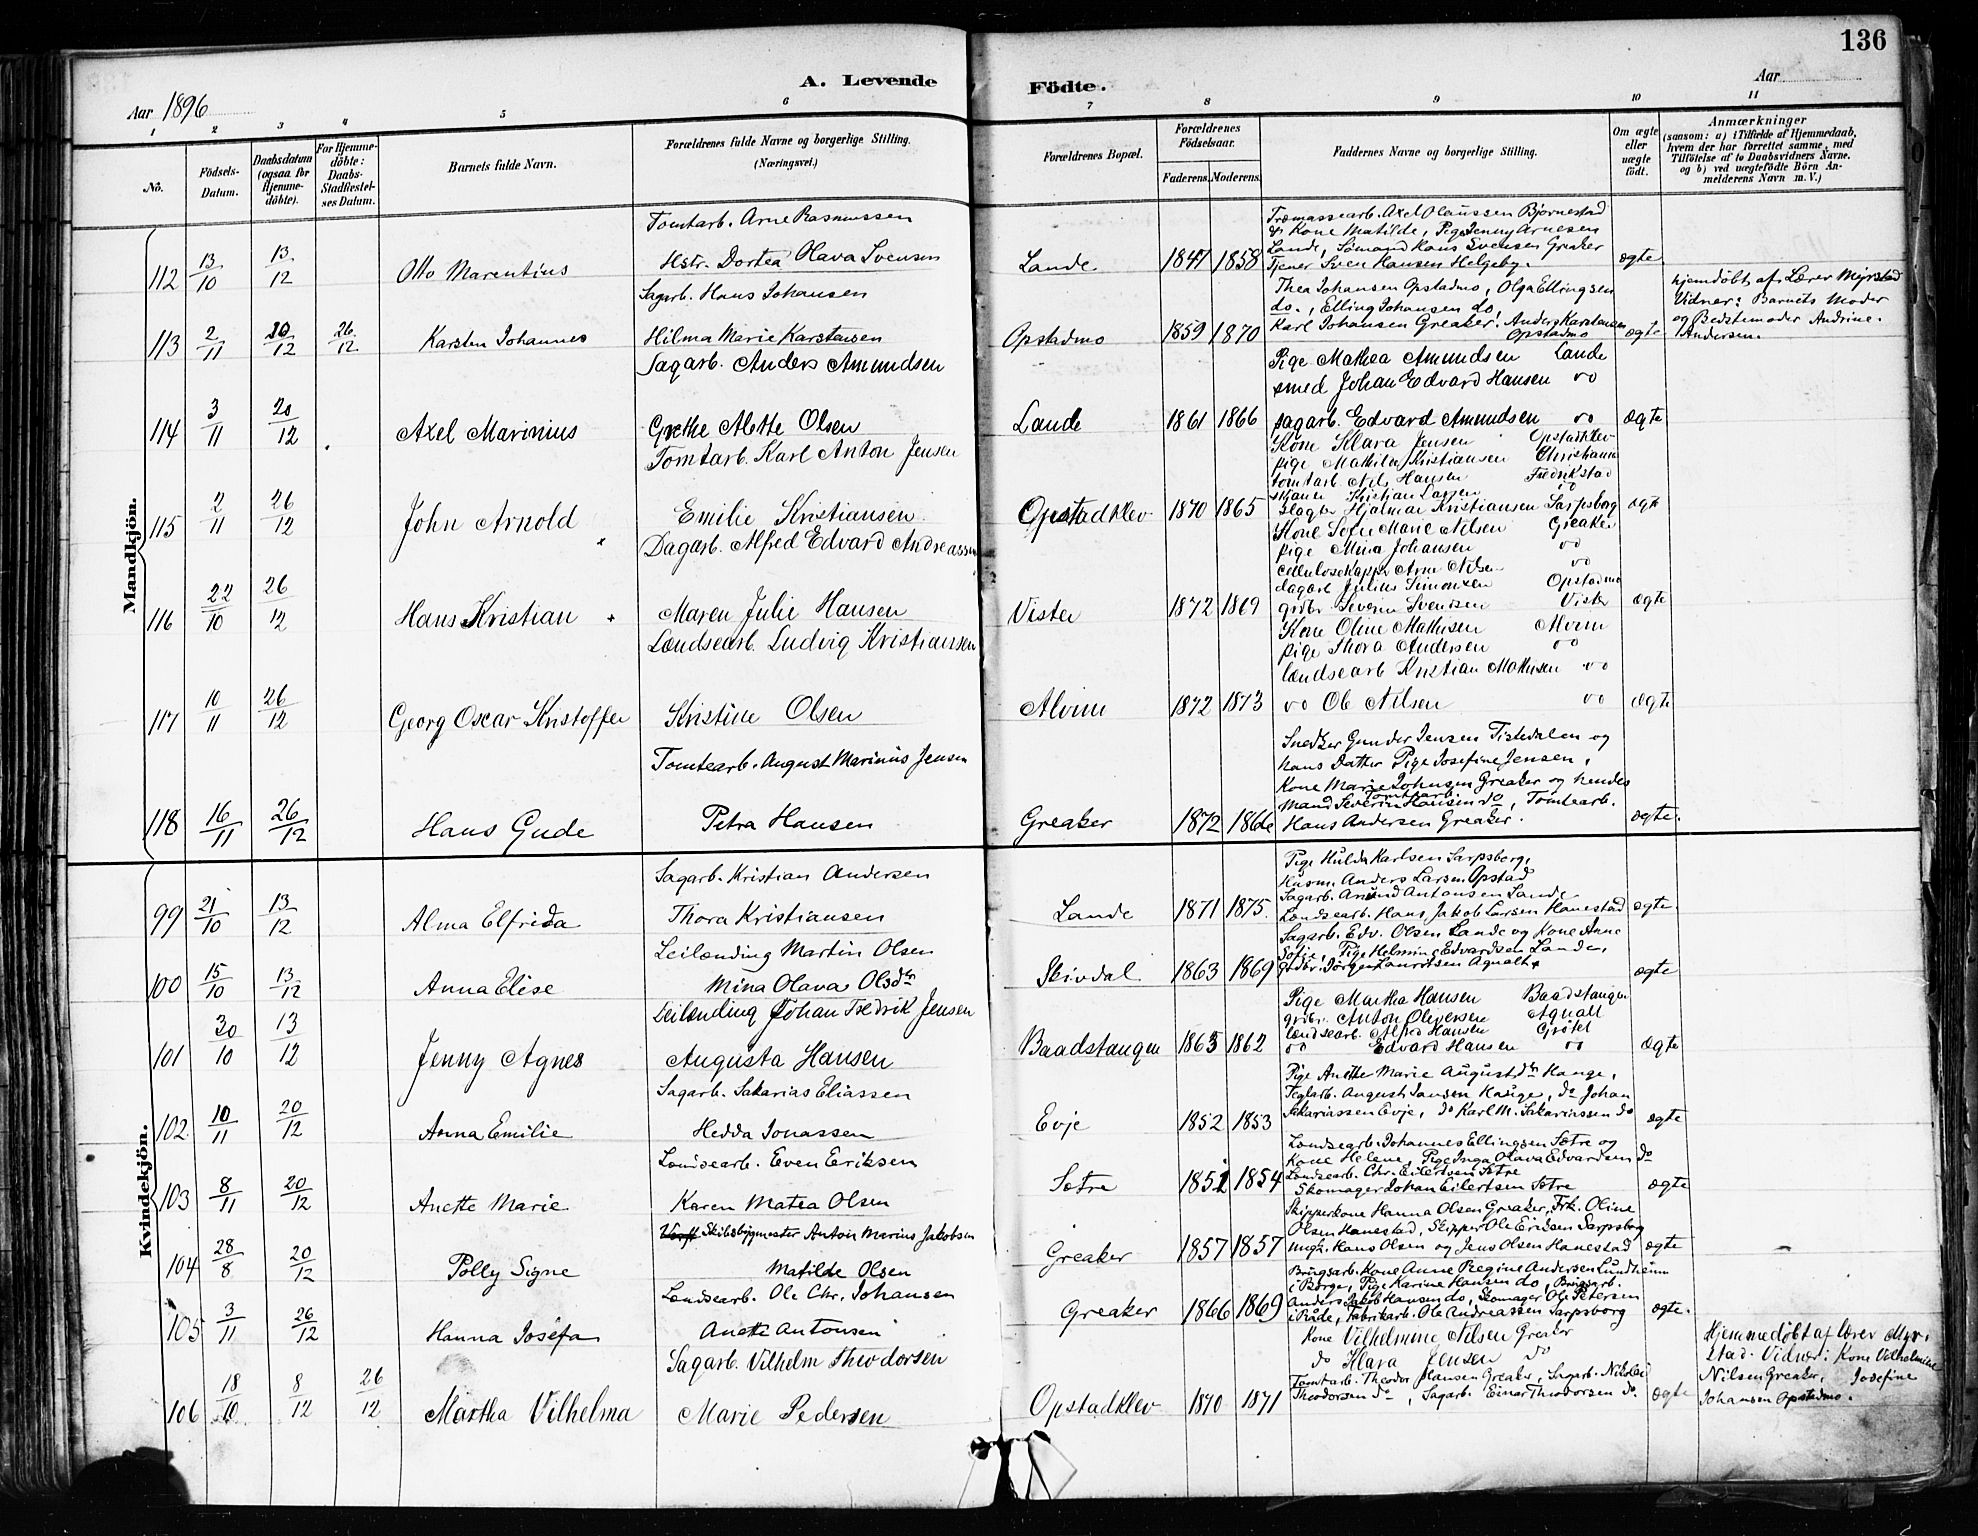 136
A. Levende Födte.
Aar 1896
Aar
1 2 3 4 5 6 7 8 9 10 11
No.
Födsels-Datum.
Daabsdatum (ogsaa for Hjemme-döbte).
For Hjemme-döbte: Daabs-Stadfæstel-ses Datum.
Barnets fulde Navn.
Forældrenes fulde Navne og borgerlige Stilling. (Næringsvei.)
Forældrenes Bopæl.
Forældrenes Födselsaar.
Faderens. Moderens.
Faddernes Navne og borgerlige Stilling.
Om ægte eller uægte födt.
Anmærkninger
(saasom: a) i Tilfælde af Hjemmedaab, hvem der har forrettet samme, med Tilföielse af to Daabsvidners Navne. og b) ved uægtefödte Börn Anmelderens Navn m. V.)
Mandkjön.
112 13/10 13/12 Otto Marentius
Tomtarb. Arne Rasmussen
Hstr. Dortea Olava Svensen
Lande 1847 1858
Træmassearb. Axel Olaussen Bjørnestad
& Kone Matilde, Pige Jenny Arnesen
Lande, Sømand Hans Svensen Greaker
Tjener Sven Hansen Helgeby.
ægte
113 2/11 20/12 26/12 Karsten Johannes
Sagarb. Hans Johansen
Hilma Marie Karstensen
Opstadmo 1859 1870
Thea Johansen Opstadmo, Olga Ellingsen
do., Elling Johansen do,
Karl Johansen Greaker, Anders Karstensen
Opstadmo
ægte
hjemdøbt af Lærer Myrstad
Vidner: Barnets Moder
og Bedstemoder Andrine
Andersen.
114 3/11 20/12 Axel Marinius
Sagarb. Anders Amundsen
Grethe Alette Olsen
Lande 1861 1866
Pige Mathea Amundsen Lande
smed Johan Edvard Hansen do
sagarb. Edvard Amundsen do
ægte
115 2/11 26/12 John Arnold
Tomtarb. Karl Anton Jensen
Emilie Kristiansen
Opstadklev 1870 1865
Kone Klara Jensen Opstadklev
pige Mathilde Kristiansen Christiania
tomtarb Nils Hansen Fredrikstad
Kristian Larsen do
Hjalmar Kristiansen Sarpsborg
ægte
116 22/10 26/12 Hans Kristian
Dagarb. Alfred Edvard Andreassen
Maren Julie Hansen
Vister 1872 1869
Kone Sofie Marie Nilsen Greaker
pige Mina Johansen do
Arne Nilsen do
dagarb Julius Simonsen Opstadmo
grdbr Severin Svendsen Vister
ægte
117 10/11 26/12 Georg Oscar Kristoffer
Lændsearb. Ludvig Kristiansen
Kristine Olsen
Alvim 1872 1873
Kone Oline Mathisen Alvim
pige Thora Andersen do
lændsearb Kristian Mathisen do
do Ole Nilsen do
ægte
118 16/11 26/12 Hans Gude
Tomtearb. August Marinius Jensen
Petra Hansen
Greaker 1872 1866
Snedker Gunder Jensen Tistedalen og
hans Datter Pige Josefine Jensen,
Kone Marie Johnsen Greaker og hendes
Mand Tomtearb. Severin Hansen do, Tomtearb.
Hans Andersen Greaker.
ægte.
Kvindekjön.
99 21/10 13/12 Alma Elfrida
Sagarb. Kristian Andersen
Thora Kristiansen
Lande 1871 1875.
Pige Hulda Karlsen Sarpsborg,
Husm Anders Larsen Opstad
Sagarb. Amund Antonsen Lande
Lændsearb. Hans Jakob Larsen Hanestad
ægte.
100 15/10 13/12 Anna Elise
Leilænding Martin Olsen
Mina Olava Olsdtr
Skivdal 1863 1869
Sagarb. Edv. Olsen Lande og Kone Anne
Sofie, Pige Helmine Edvardsen Lande,
grdbr. Jørgen Lauritsen Agnalt
ægte
101 30/10 13/12 Jenny Agnes
Leilænding Johan Fredrik Jensen
Augusta Hansen
Baadstangen 1863 1862
Pige Martha Hansen Baadstangen
grdbr. Anton Oliversen Agnalt
lændsearb. Alfred Hansen Grøtet
do Edvard Hansen do
ægte
102 10/11 20/12 Anna Emilie
Sagarb. Sakarias Eliassen
Hedda Jonassen
Evje 1852 1853
Pige Anette Marie Augustdtr Hauge,
Teglarb. August Jansen Hauge, do Johan
Sakariassen Evje, do Karl M. Sakariassen do
ægte
103 8/11 20/12 Anette Marie
Lændsearb. Even Eriksen
Karen Matea Olsen
Sætre 1851 1854
Lændsearb. Johannes Ellingsen Sætre og
Kone Helene, Pige Inga Olava Edvardsen do
Lændsearb. Chr. Eilertsen Sætre
Skomager Johan Eilertsen Sætre
ægte
104 28/8 20/12 Polly Signe
Skibsbygmester Anton Marius Jakobsen
Matilde Olsen
Greaker 1857 1857
Skipperkone Hanna Olsen Greaker, Frk. Oline
Olsen Hanestad, Skipper Ole Eriksen Sarpsborg
ungk. Hans Olsen og Jens Olsen Hanestad
ægte
105 3/11 26/12 Hanna Josefa
Lændsearb. Ole Chr. Johansen
Anette Antonsen
Greaker 1866 1869
Brugsarb. Kone Anne Regine Andersen Lundheim
i Borge, Pige Karine Hansen do, Brugsarb.
Anders Jakob Hansen do, Skomager Ole Petersen
i Råde, Fabrikarb. Ole Andreassen Sarpsborg
ægte.
106 18/10 8/12 26/12 Martha Vilhelma
Sagarb. Vilhelm Theodorsen
Marie Pedersen
Opstadklev 1870 1871
Kone Vilhelmine Nilsen Greaker
do Klara Jensen do
Tomtarb. Theodor Hansen Greaker, Sagarb. Nikolai
Theodorsen do, Sagarb. Einar Theodorsen do.
ægte
Hjemmedøbt af lærer Myr-
stad. Vidner: Kone Vilhelmine
Nilsen Greaker, Josefine
Johansen Opstadmo.